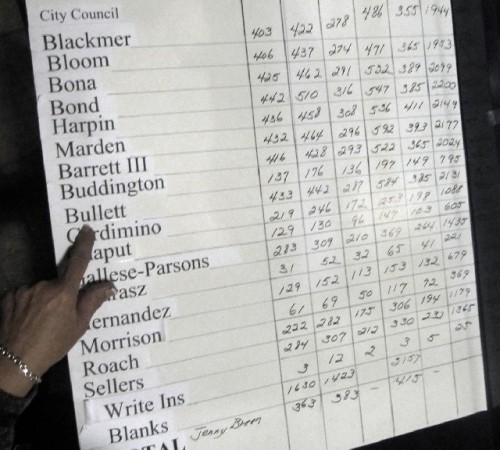 City Council
Blackmer 403 422 278 486 355 1944
Bloom 406 437 274 471 365 1953
Bona 425 462 291 532 389 2099
Bond 442 510 316 547 385 2200
Harpin 436 458 308 536 411 2149
Marden 432 464 296 592 393 2177
Barrett III 416 428 293 522 365 2024
Buddington 137 176 136 197 149 795
Bullett 433 442 287 584 385 2131
219 246 172 253 198 1088
129 130 96 147 103 605
allese-Parsons 283 309 210 369 264 1435
31 52 32 65 41 221
ernandez 129 152 113 153 132 679
Morrison 61 69 50 117 72 369
Roach 222 282 175 306 194 1179
Sellers 284 307 212 330 231 1365
Write Ins 3 12 2 3 5 25
Blanks 1630 1423 - 2157 -
Jenny 363 383 - 415 -